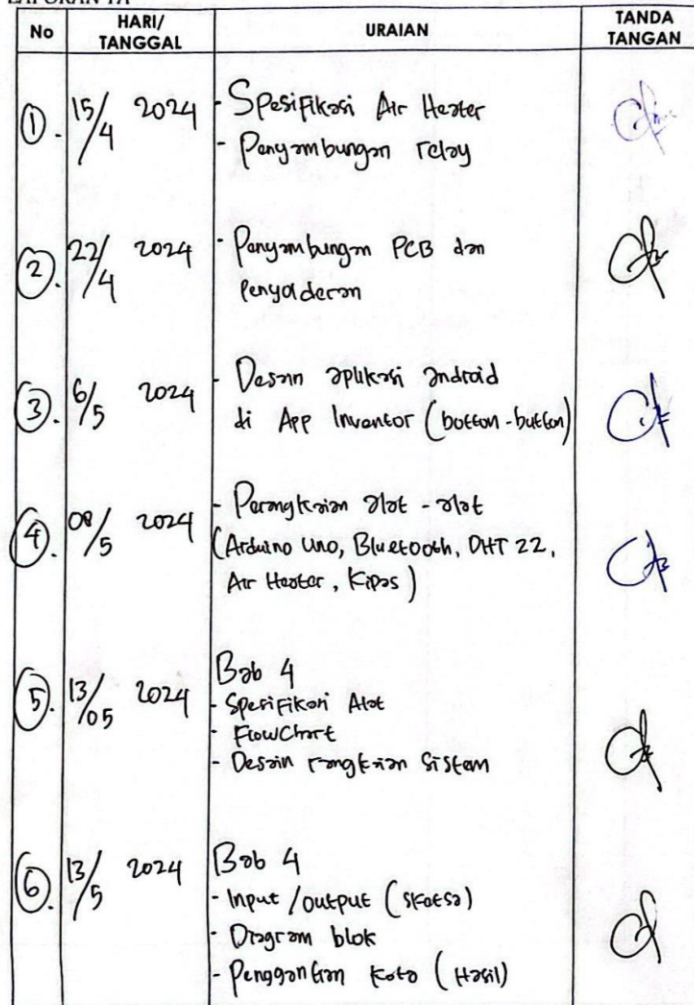 LAPORAN TA
No HARI/ TANGGAL URAIAN TANDA TANGAN
1. 15/4 2024 - Spesifikasi Air Heater
- Penyambungan relay
2. 22/4 2024 - Penyambungan PCB dan
Penyolderan
3. 6/5 2024 - Desain aplikasi android
di App Inventor (botton-button)
4. 08/5 2024 - Perangkaian alat - alat
(Arduino Uno, Bluetooth, DHT 22,
Air Heater, Kipas)
5. 13/05 2024 Bab 4
- Spesifikasi Alat
- FlowChart
- Desain rangkaian Sistem
6. 13/5 2024 Bab 4
- Input /output (sketsa)
- Diagram blok
- Penggantian Kata (Hasil)